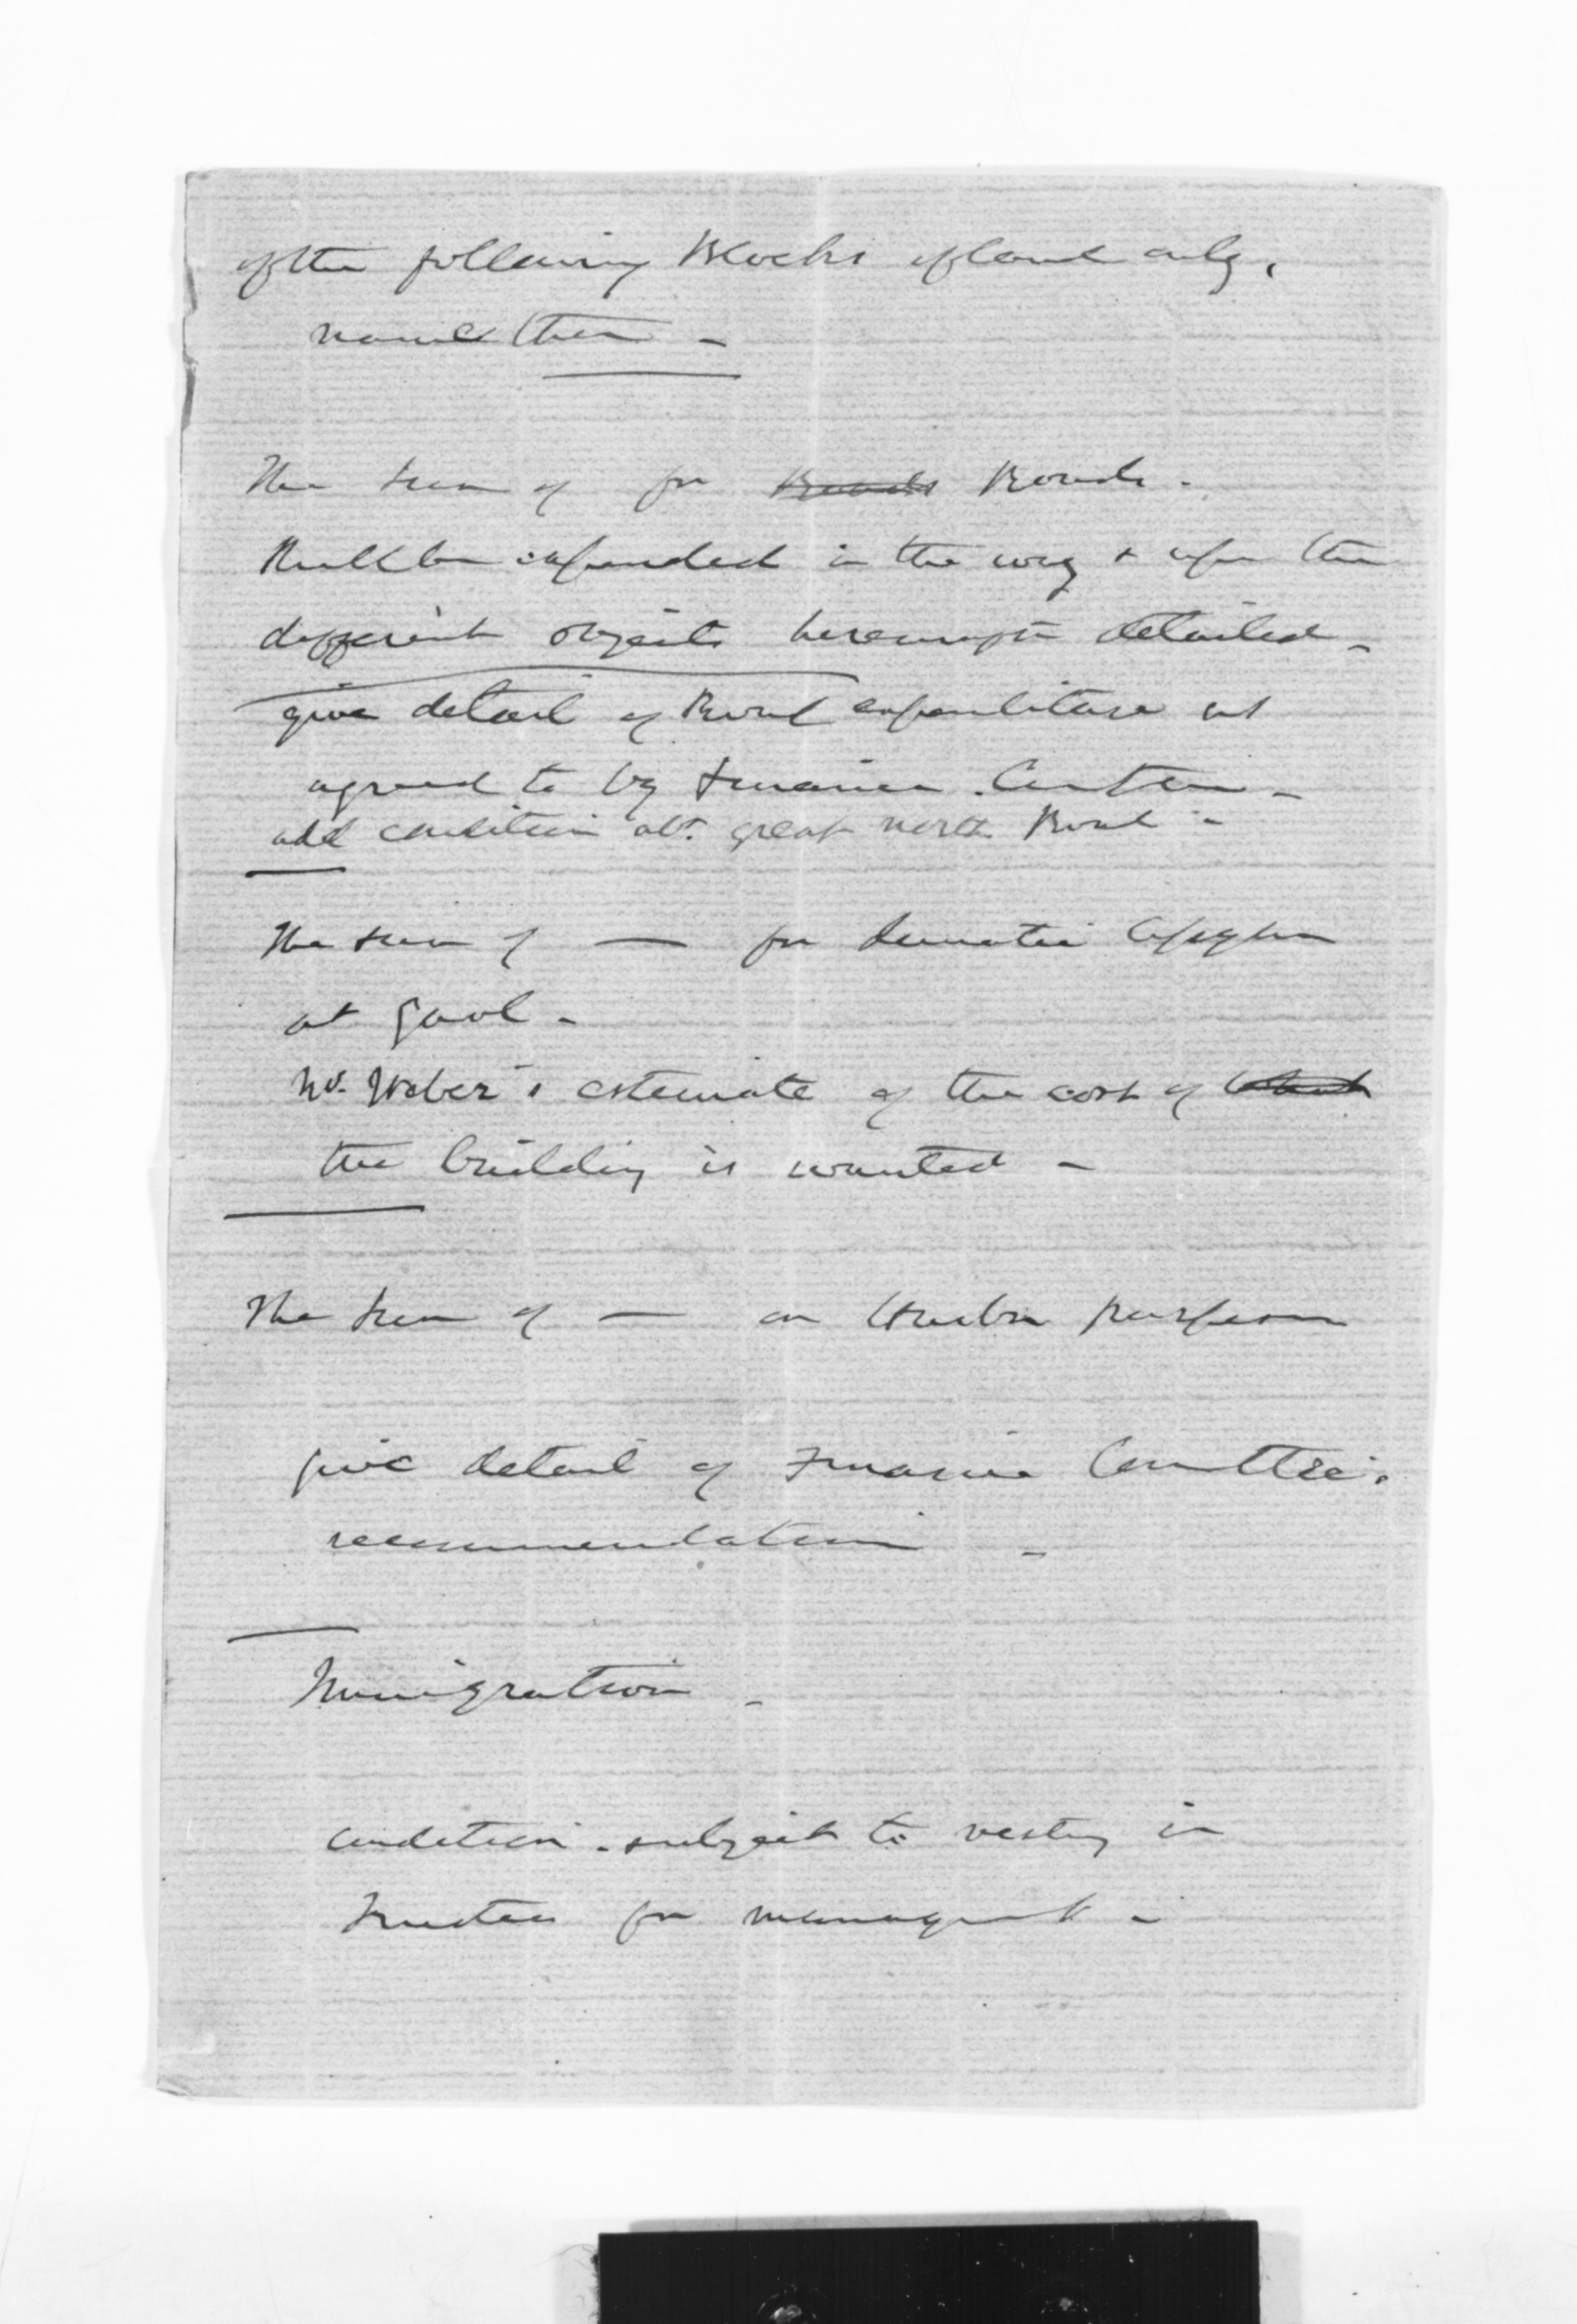 of the following Blocks of land only,
name them -
The sum of for Roads Roads -
Shall be expended in the way & upon the
different objects hereinafter detailed -
give detail of Road expenditure as
agreed to by Finance Comttee -
add condition abt. great north Road -
The sum of — for Lunatic Asylum
at Gaol -
Mr. Weber's estimate of the cost of
the building is wanted -
The sum of — on Harbor purposes
give detail of Finance Committee's
recommendation -
Immigration -
condition - subject to vesting in
Trustees for management -